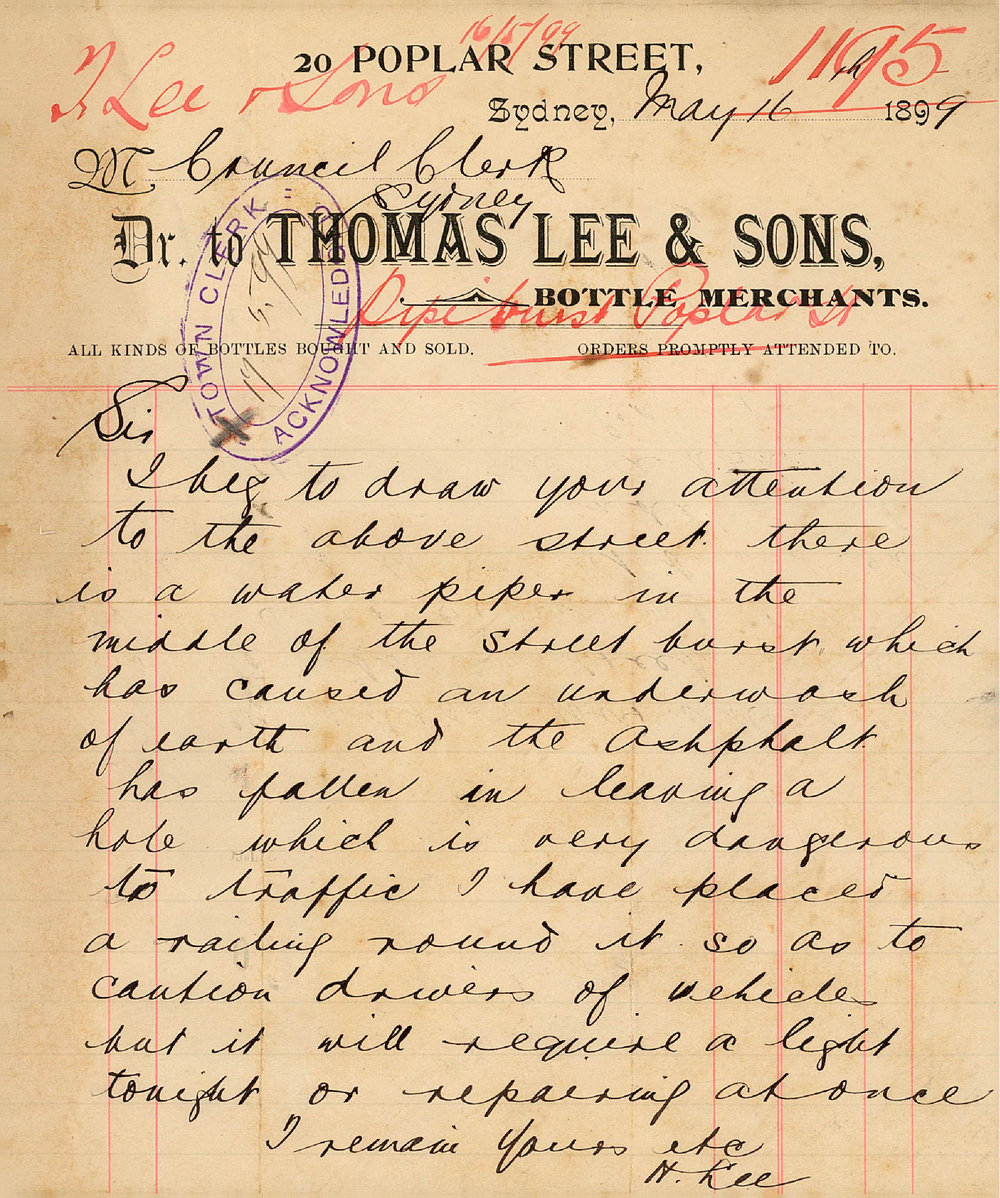 16/5/99
20 POPLAR STREET,
T. Lee & Sons
1195
Sydney, May 16th 1899
M. Council Clerk
Sydney
Dr. to THOMAS LEE & SONS,
BOTTLE MERCHANTS.
Pipe burst Poplar St
ALL KINDS OF BOTTLES BOUGHT AND SOLD. ORDERS PROMPTLY ATTENDED TO.
TOWN CLERK
17.5.99
ACKNOWLEDGD
Sir
I beg to draw your attention
to the above street. there
is a water piper in the
middle of the street burst which
has caused an underwash
of earth and the Ashphalt
has fallen in leaving a
hole which is very dangerous
to traffic I have placed
a railing round it so as to
caution drivers of vehicles
but it will require a light
tonight or repairing at once
I remain yours etc
H. Lee